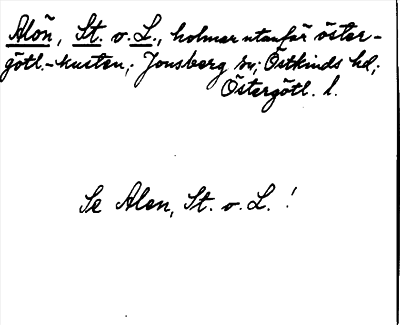 Alöñ, St. o. L., holmar utanför öster-
götl.-kusten; Jonsberg sn; Östkinds hd;
Östergötl. l.
Se Alen, St. o. L. !